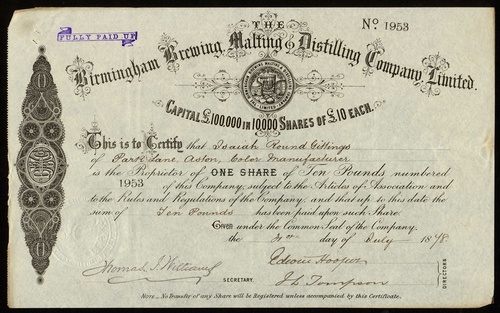 FULLY PAID UP
THE
No. 1953
Birmingham Brewing, Malting & Distilling Company, Limited.
CAPITAL £100,000 IN 10,000 SHARES OF £10 EACH.
This is to Certify that Isaiah Round Gittings
of Park Lane, Aston, Color Manufacturer
is the Proprietor of ONE SHARE of Ten Pounds numbered
1953 of this Company, subject to the Articles of Association and
to the Rules and Regulations of the Company, and that up to this date the
sum of Ten Pounds has been paid upon such Share
GIVEN under the Common Seal of the Company,
the day of July 1878
Edwin Hooper
Thomas J. Williams
SECRETARY.
J. L. Tompson
DIRECTORS
NOTE._No Transfer of any Share will be Registered unless accompanied by this Certificate.